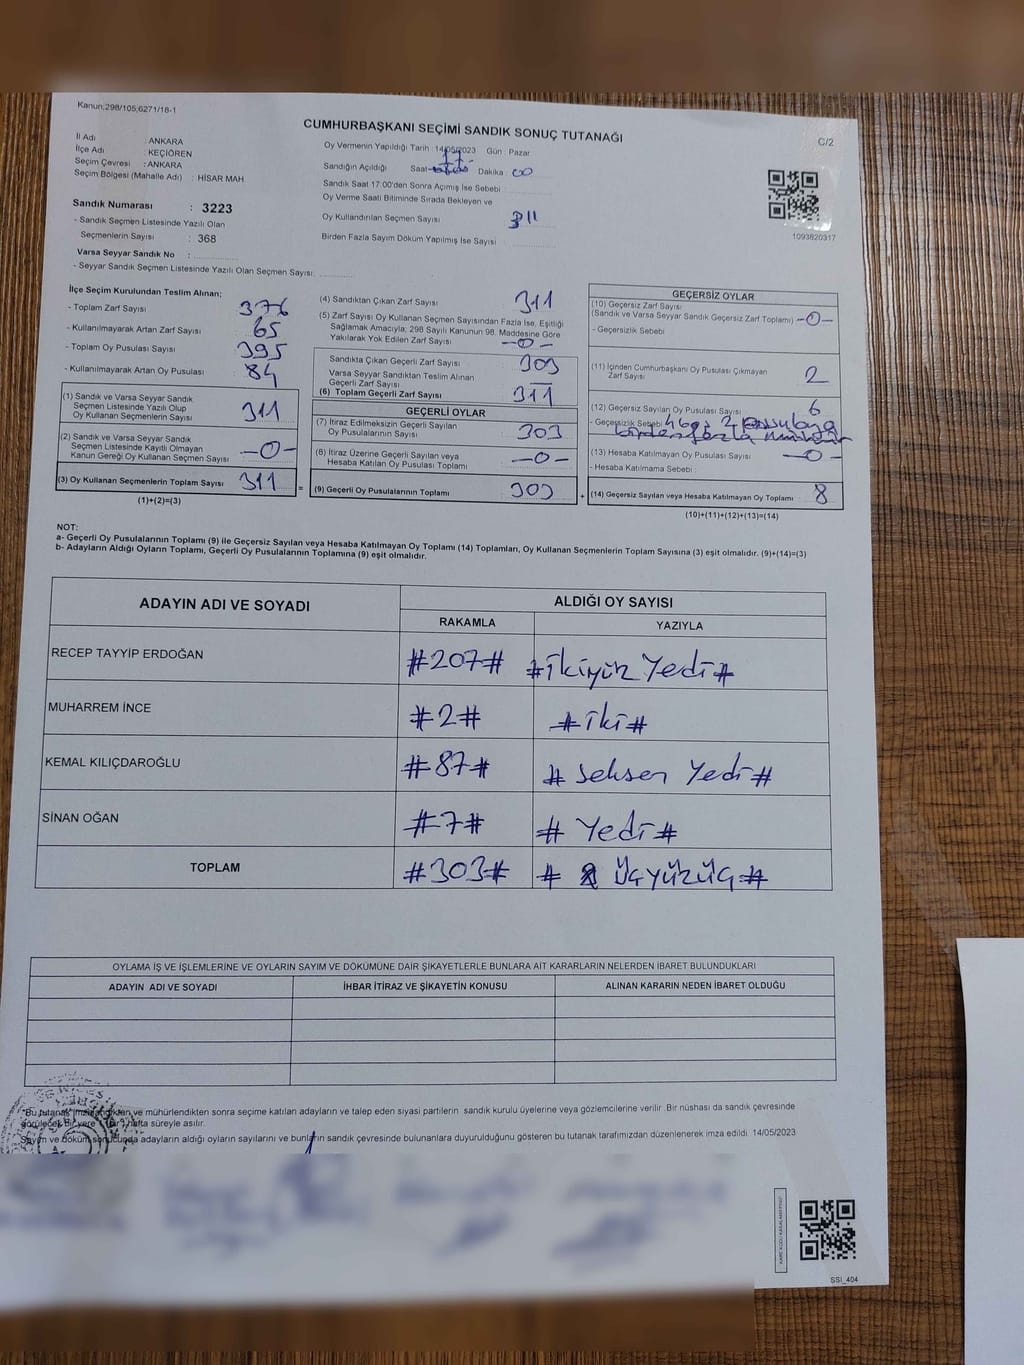 Kanun;298/105;6271/18-1
CUMHURBAŞKANI SEÇİMİ SANDIK SONUÇ TUTANAĞI
C/2
İl Adı : ANKARA
İlçe Adı : KEÇİÖREN
Seçim Çevresi : ANKARA
Seçim Bölgesi (Mahalle Adı) : HİSAR MAH
Sandık Numarası : 3223
- Sandık Seçmen Listesinde Yazılı Olan
Seçmenlerin Sayısı : 368
Varsa Seyyar Sandık No :
- Seyyar Sandık Seçmen Listesinde Yazılı Olan Seçmen Sayısı:
Oy Vermenin Yapıldığı Tarih : 14/05/2023 Gün : Pazar
Sandığın Açıldığı Saat 17 Dakika 00
Sandık Saat 17:00'den Sonra Açımış İse Sebebi
Oy Verme Saati Bitiminde Sırada Bekleyen ve
Oy Kullandırılan Seçmen Sayısı 311
Birden Fazla Sayım Döküm Yapılmış İse Sayısı
1093820317
İlçe Seçim Kurulundan Teslim Alınan;
- Toplam Zarf Sayısı 376
- Kullanılmayarak Artan Zarf Sayısı 65
- Toplam Oy Pusulası Sayısı 395
- Kullanılmayarak Artan Oy Pusulası 84
(1) Sandık ve Varsa Seyyar Sandık
Seçmen Listesinde Yazılı Olup
Oy Kullanan Seçmenlerin Sayısı 311
(2) Sandık ve Varsa Seyyar Sandık
Seçmen Listesinde Kayıtlı Olmayan
Kanun Gereği Oy Kullanan Seçmen Sayısı -0-
(3) Oy Kullanan Seçmenlerin Toplam Sayısı 311
(1)+(2)=(3)
=
(4) Sandıktan Çıkan Zarf Sayısı 311
(5) Zarf Sayısı Oy Kullanan Seçmen Sayısından Fazla İse, Eşitliği
Sağlamak Amacıyla; 298 Sayılı Kanunun 98. Maddesine Göre
Yakılarak Yok Edilen Zarf Sayısı -0-
Sandıkta Çıkan Geçerli Zarf Sayısı 303
Varsa Seyyar Sandıktan Teslim Alınan
Geçerli Zarf Sayısı
(6) Toplam Geçerli Zarf Sayısı 311
GEÇERLİ OYLAR
(7) İtiraz Edilmeksizin Geçerli Sayılan
Oy Pusulalarının Sayısı 303
(8) İtiraz Üzerine Geçerli Sayılan veya
Hesaba Katılan Oy Pusulası Toplamı -0-
(9) Geçerli Oy Pusulalarının Toplamı 303
+
GEÇERSİZ OYLAR
(10) Geçersiz Zarf Sayısı
(Sandık ve Varsa Seyyar Sandık Geçersiz Zarf Toplamı) -0-
- Geçersizlik Sebebi
(11) İçinden Cumhurbaşkanı Oy Pusulası Çıkmayan
Zarf Sayısı 2
(12) Geçersiz Sayılan Oy Pusulası Sayısı 6
- Geçersizlik Sebebi 2 pusulaya
birden fazla
(13) Hesaba Katılmayan Oy Pusulası Sayısı -0-
- Hesaba Katılmama Sebebi :
(14) Geçersiz Sayılan veya Hesaba Katılmayan Oy Toplamı 8
(10)+(11)+(12)+(13)=(14)
NOT:
a- Geçerli Oy Pusulalarının Toplamı (9) ile Geçersiz Sayılan veya Hesaba Katılmayan Oy Toplamı (14) Toplamları, Oy Kullanan Seçmenlerin Toplam Sayısına (3) eşit olmalıdır. (9)+(14)=(3)
b- Adayların Aldığı Oyların Toplamı, Geçerli Oy Pusulalarının Toplamına (9) eşit olmalıdır.
ADAYIN ADI VE SOYADI ALDIĞI OY SAYISI
RAKAMLA YAZIYLA
RECEP TAYYİP ERDOĞAN #207# #İkiyüz Yedi#
MUHARREM İNCE #2# #iki#
KEMAL KILIÇDAROĞLU #87# # Seksen Yedi#
SİNAN OĞAN #7# # Yedi#
TOPLAM #303# # Üçyüzüç#
OYLAMA İŞ VE İŞLEMLERİNE VE OYLARIN SAYIM VE DÖKÜMÜNE DAİR ŞİKAYETLERLE BUNLARA AİT KARARLARIN NELERDEN İBARET BULUNDUKLARI
ADAYIN ADI VE SOYADI İHBAR İTİRAZ VE ŞİKAYETİN KONUSU ALINAN KARARIN NEDEN İBARET OLDUĞU
"Bu tutanak imzalandıktan ve mühürlendikten sonra seçime katılan adayların ve talep eden siyasi partilerin sandık kurulu üyelerine veya gözlemcilerine verilir .Bir nüshası da sandık çevresinde
görülecek bir yere 1 (bir) hafta süreyle asılır.
Sayım ve döküm sonucunda adayların aldığı oyların sayılarını ve bunların sandık çevresinde bulunanlara duyurulduğunu gösteren bu tutanak tarafımızdan düzenlenerek imza edildi. 14/05/2023
SSI_404